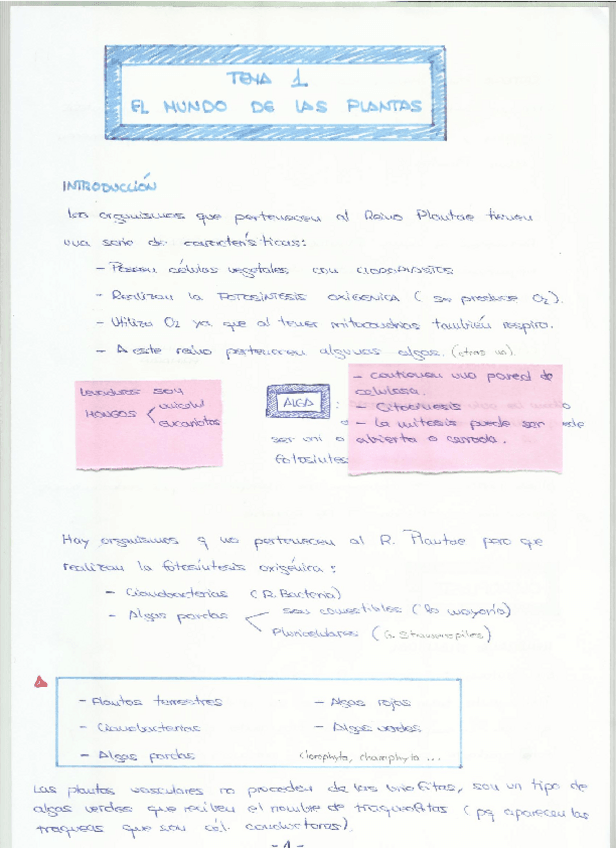 TEMA 1
EL MUNDO DE LAS PLANTAS
INTRODUCCIÓN
Los organismos que pertenecen al Reino Plantae tienen
una serie de características:
- Poseen células vegetales con CLOROPLASTOS
- Realizan la FOTOSÍNTESIS OXIGENICA (se produce O2).
- Utiliza O2 ya que al tener mitocondrias también respira.
- A este reino pertenecen algunas algas. (otras no).
Levaduras son
HONGOS
unicelul
eucariotas
ALGA :
ser uni o
fotosíntes
- contienen una pared de
celulosa.
- Citocinesis
- La mitosis puede ser
abierta o cerrada.
Hay organismos q no pertenecen al R. Plantae pero que
realizan la fotosíntesis oxigénica:
- Cianobacterias (R. Bacteria)
- Algas pardas
son comestibles (la mayoría)
Pluricelulares (G. Stramenopiles)
- Plantas terrestres
- Algas rojas
- Cianobacterias
- Algas verdes
- Algas pardas
clorophyta, charophyta ...
Las plantas vasculares no proceden de las briofitas, son un tipo de
algas verdes que reciben el nombre de traqueofitas (pq aparecen las
traqueas que son cél. conductoras).
-1-